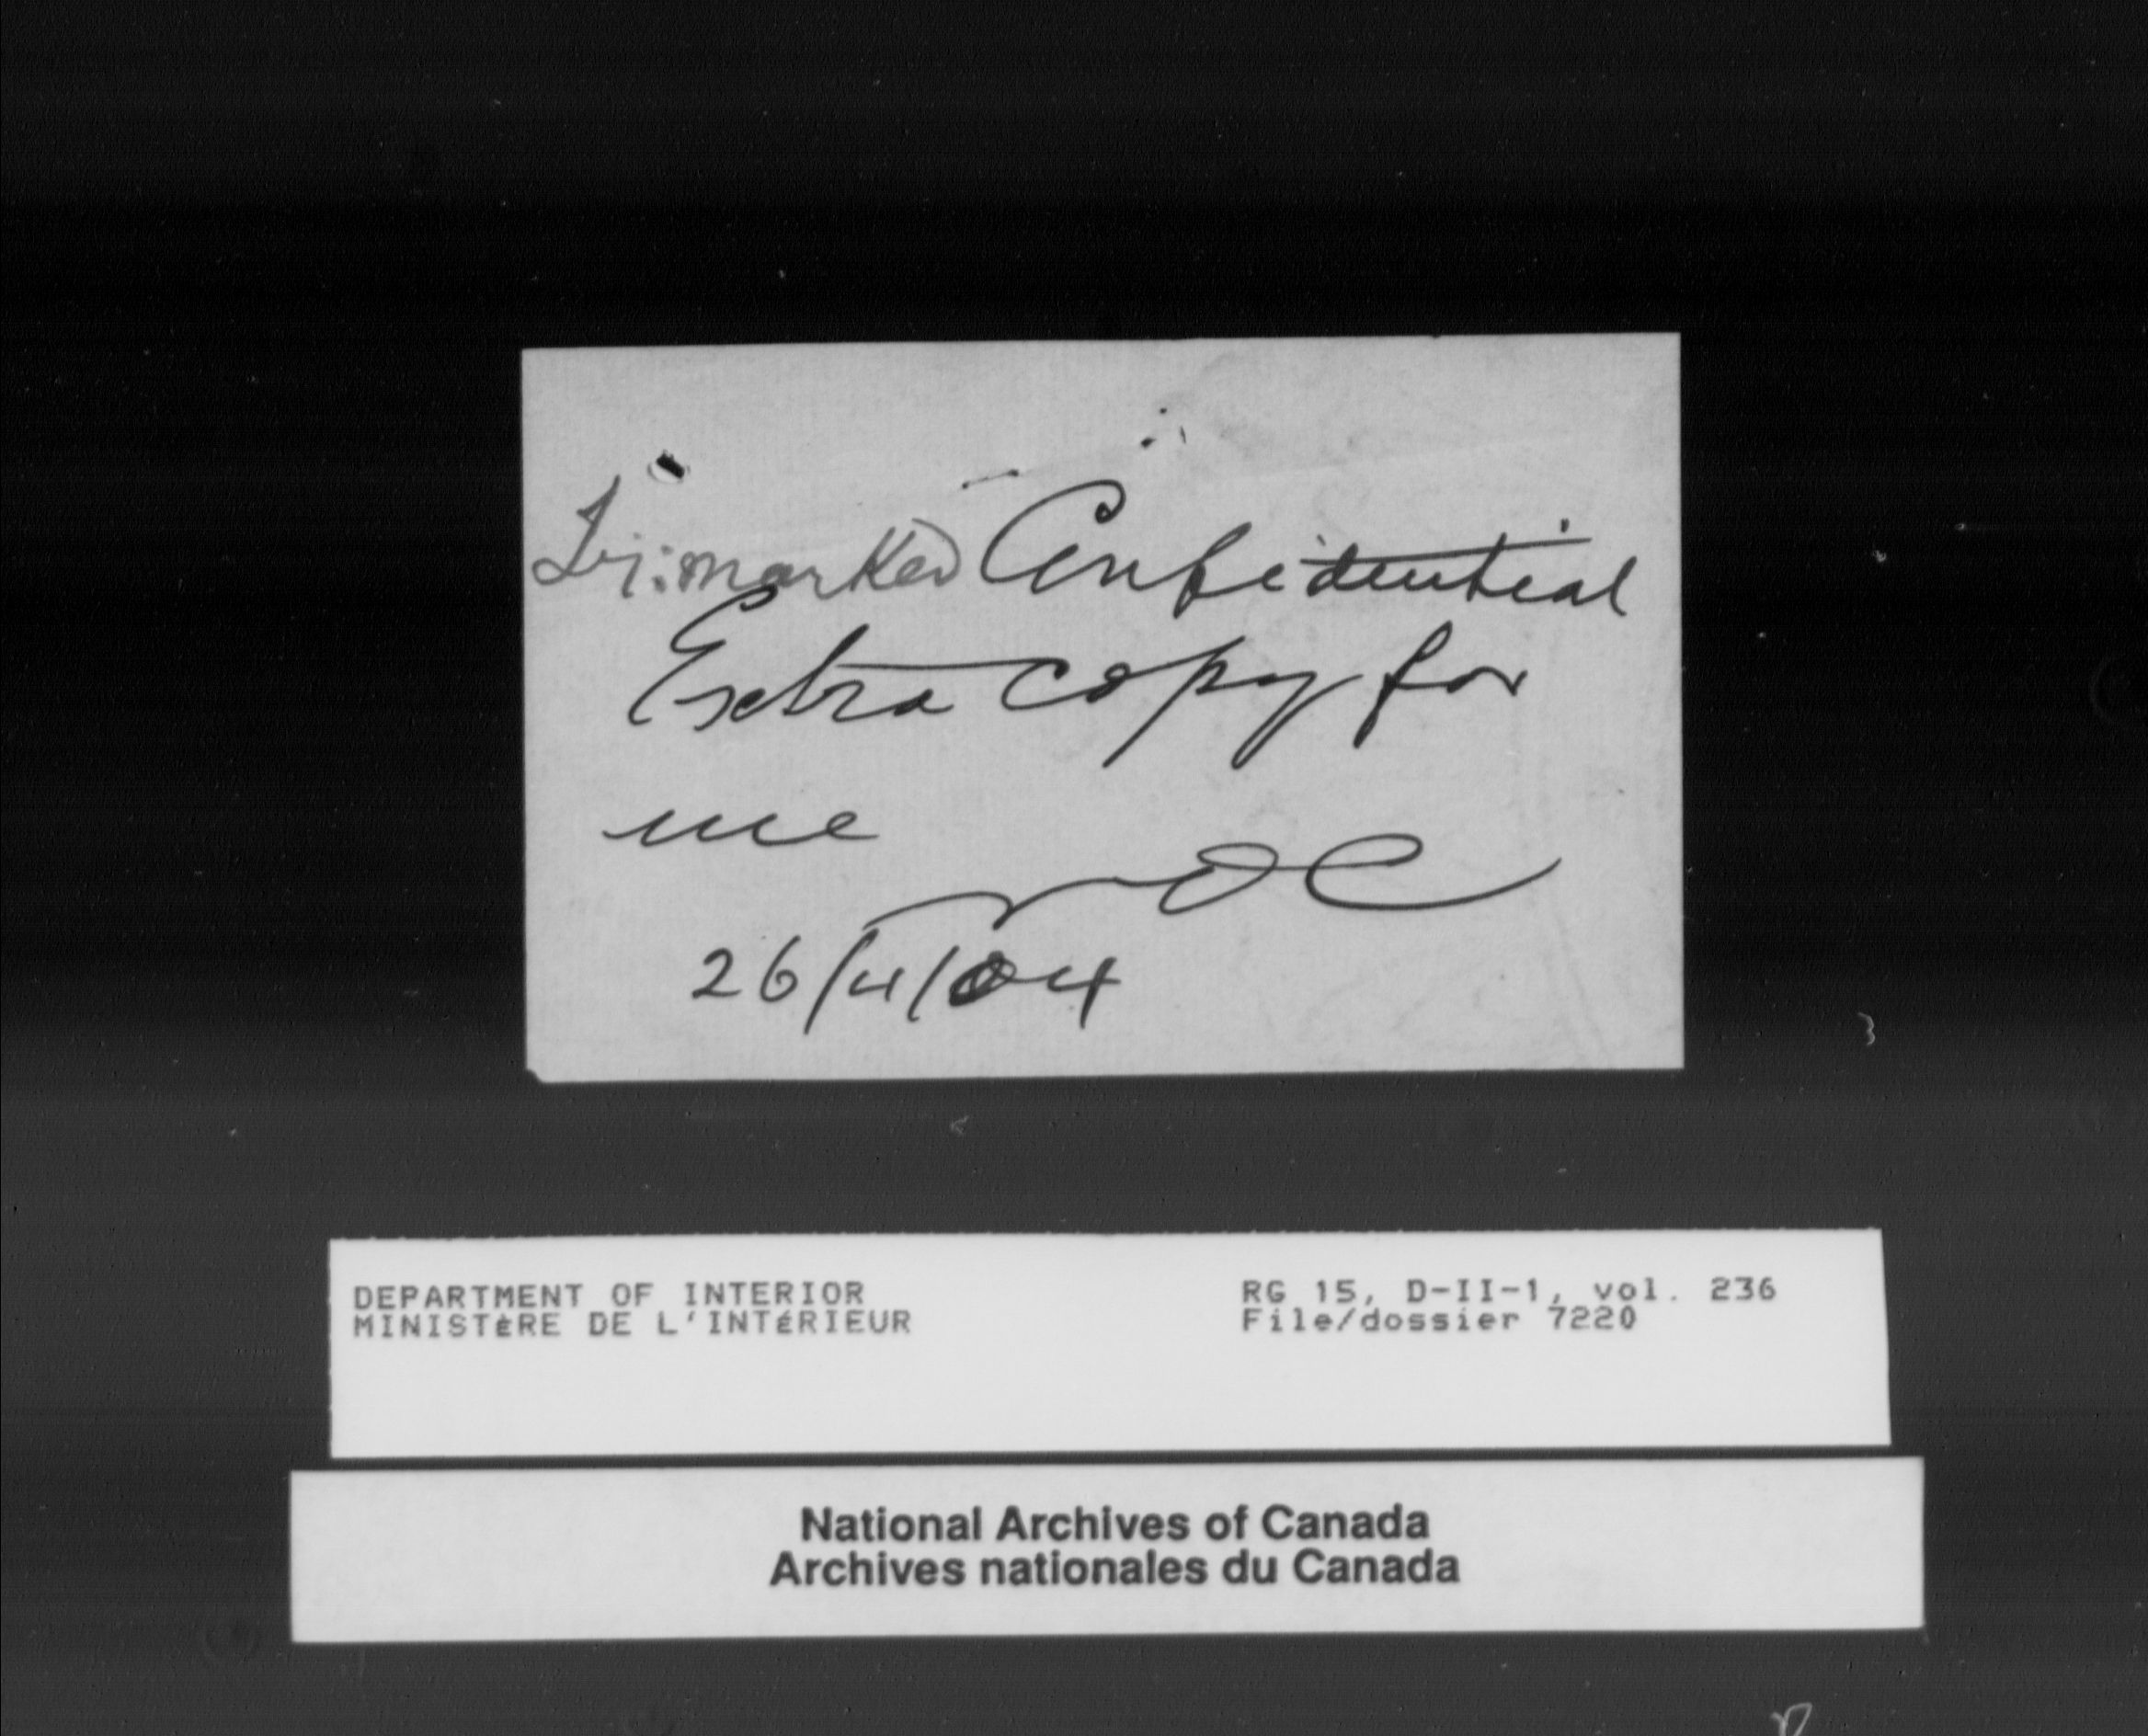 marked Confidential
Extra copy for
me
26/4/04
DEPARTMENT OF INTERIOR
MINISTÈRE DE L'INTÉRIEUR
RG 15, D-II-1, vol. 236
File/dossier 7220
National Archives of Canada
Archives nationales du Canada